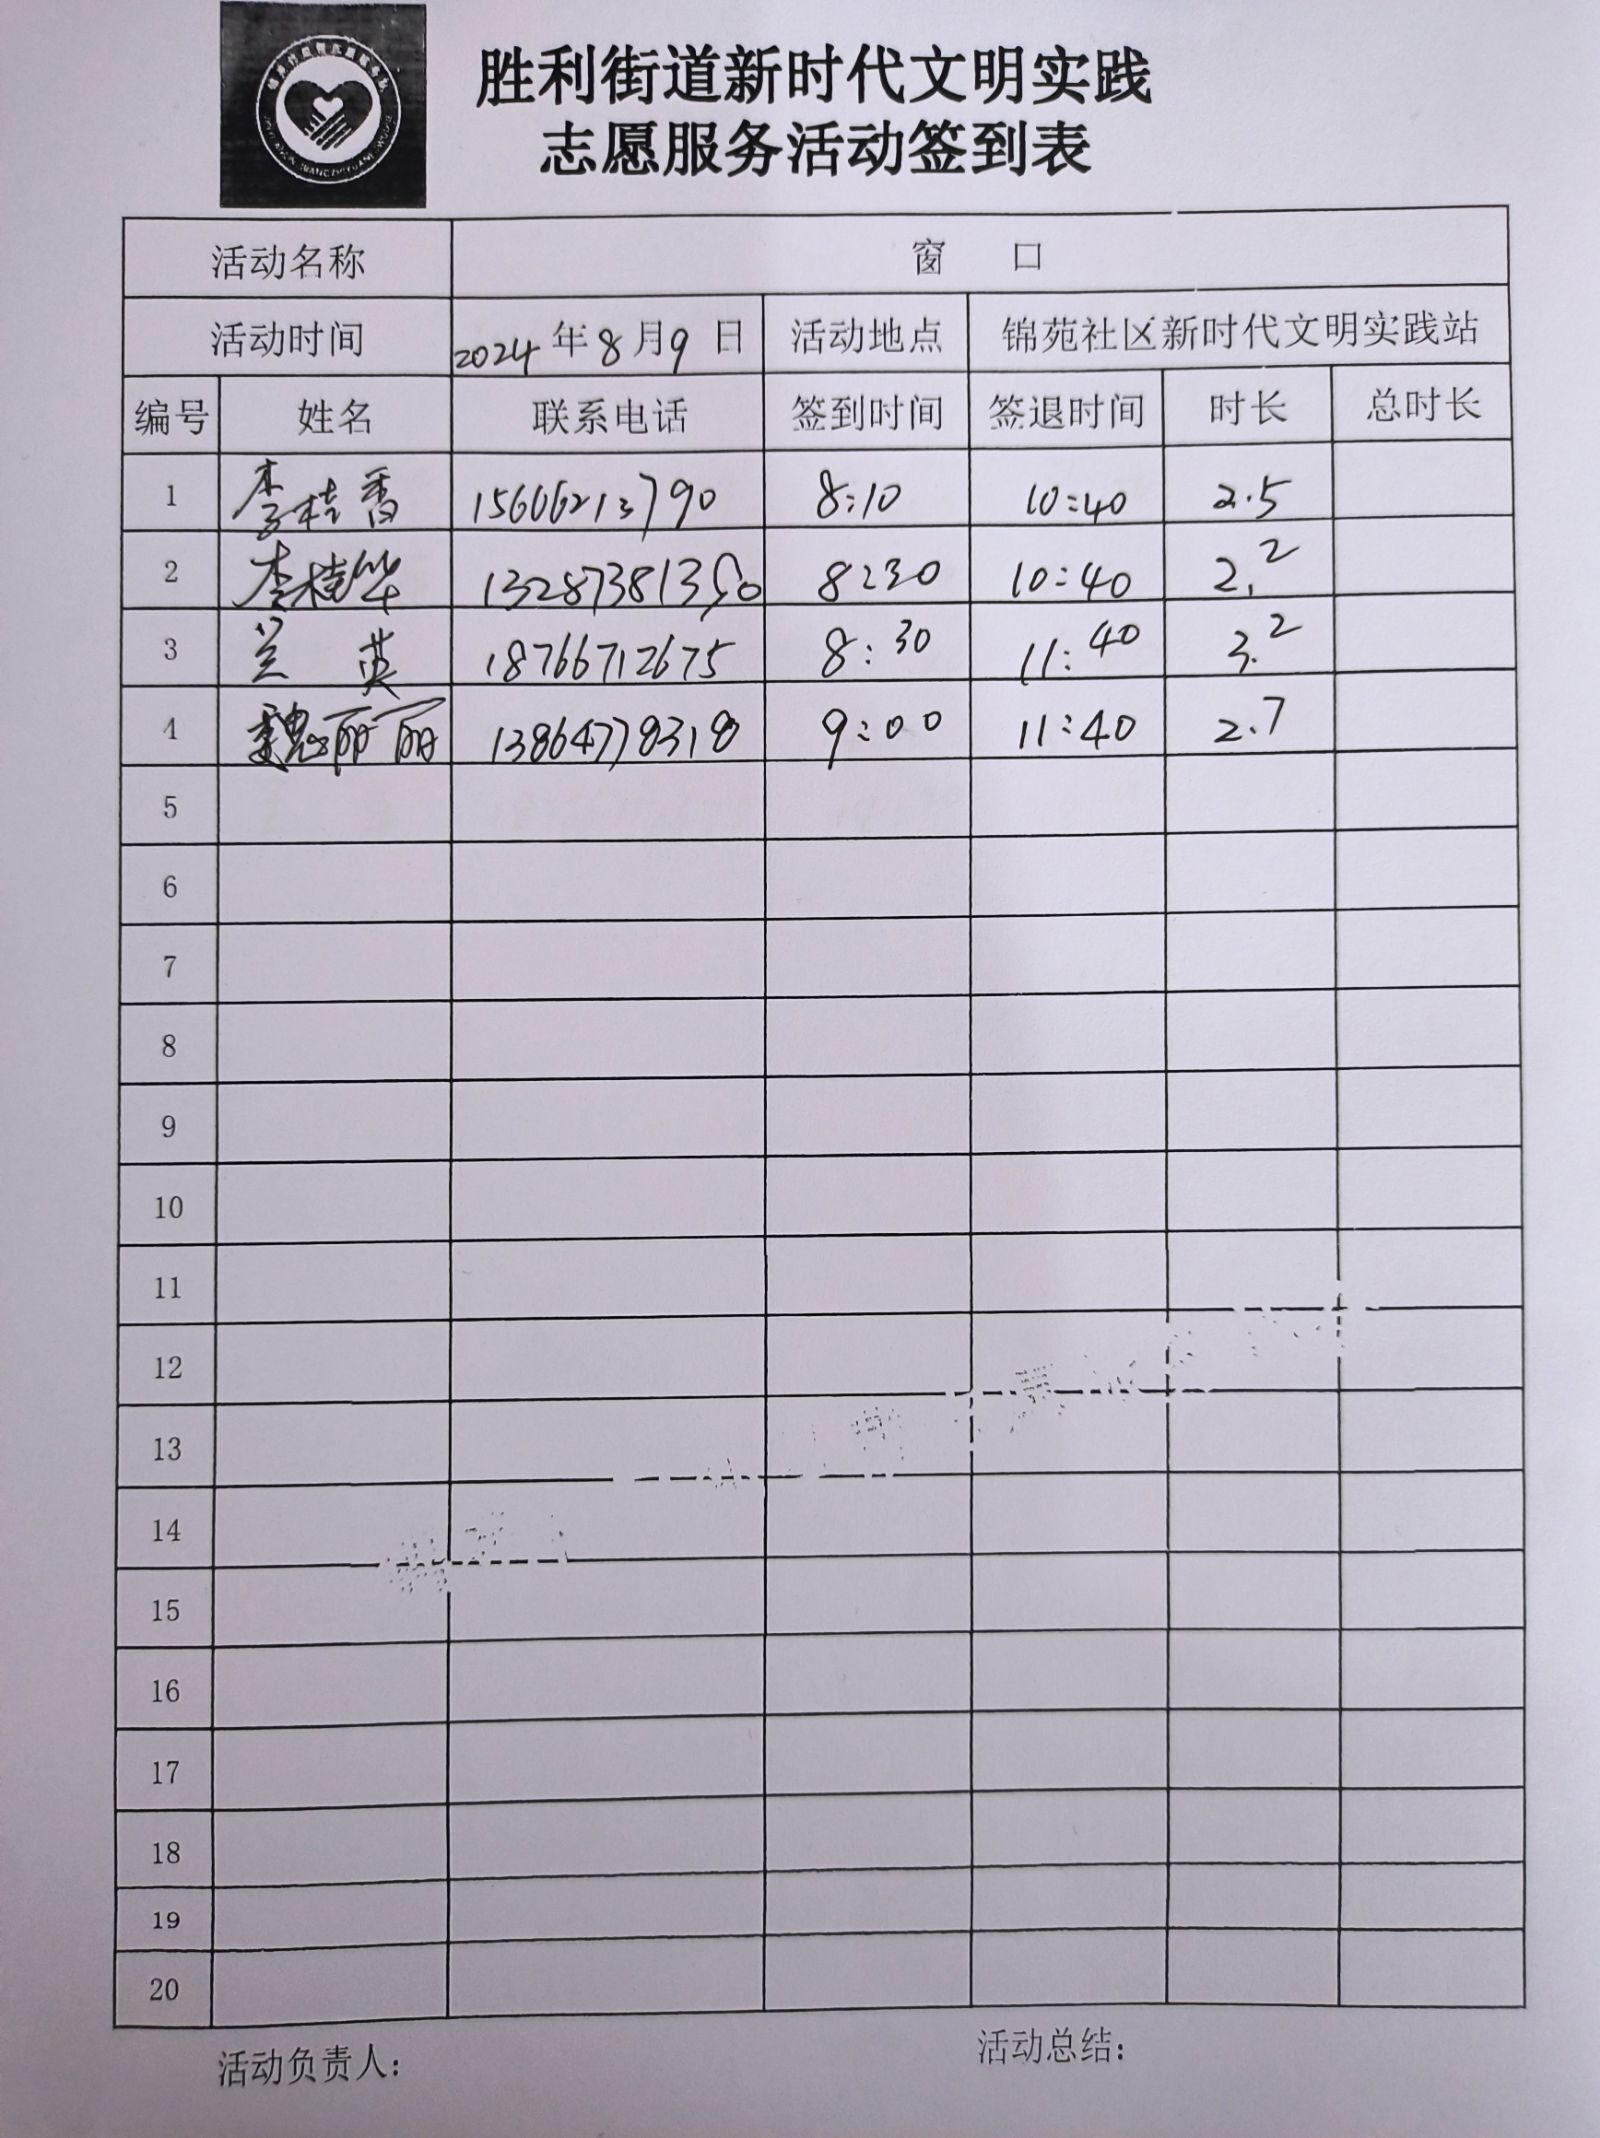 胜利街道新时代文明实践
志愿服务活动签到表
活动名称 窗 口
活动时间 2024 年 8 月 9 日 活动地点 锦苑社区新时代文明实践站
编号 姓名 联系电话 签到时间 签退时间 时长 总时长
1 李桂香 15606213790 8:10 10:40 2.5
2 李桂华 13287381350 8:30 10:40 2.2
3 兰英 18766712675 8:30 11:40 3.2
4 魏丽丽 13864778318 9:00 11:40 2.7
5
6
7
8
9
10
11
12
13
14
15
16
17
18
19
20
活动负责人: 活动总结: